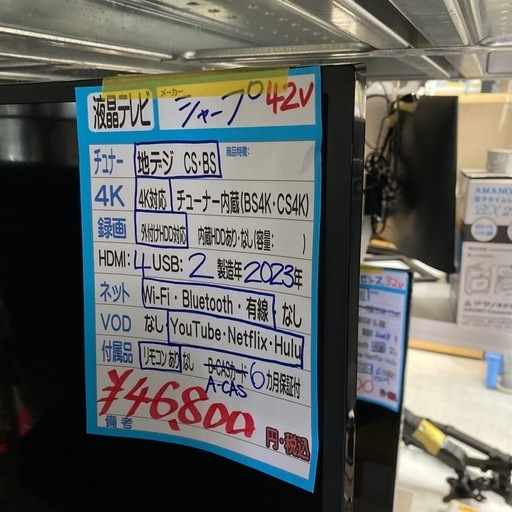 液晶テレビ メーカー シャープ 42V
チュナー 地デジ CS・BS 商品特徴:
4K 4K対応 チューナー内蔵(BS4K・CS4K)
録画 外付けHDD対応 内蔵HDDあり・なし(容量: )
HDMI: 4 USB: 2 製造年 2023年
ネット Wi-Fi・Bluetooth・有線・なし
VOD なし YouTube・Netflix・Hulu
付属品 リモコン あり なし B-CASカード 6カ月保証付
A-CAS
¥46,800
円・税込
備考
32V
AMANO